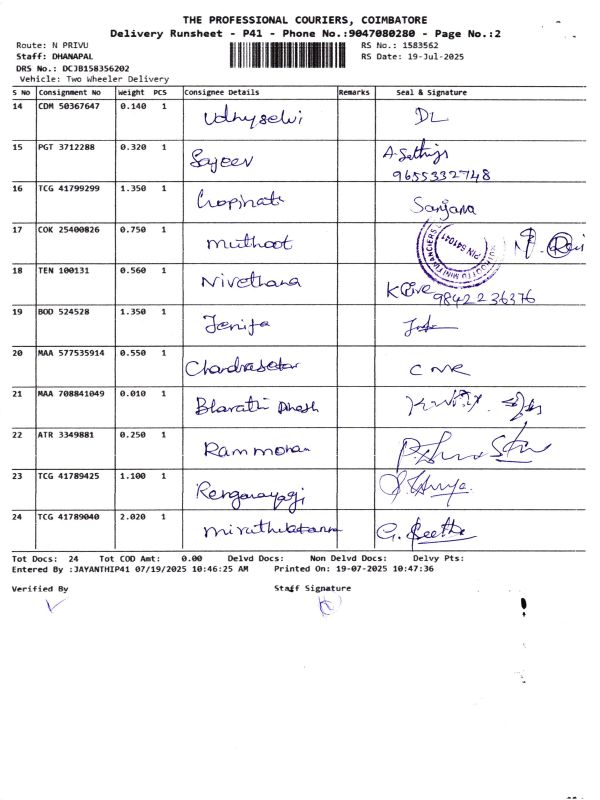 THE PROFESSIONAL COURIERS, COIMBATORE
Delivery Runsheet - P41 - Phone No.:9047080280 - Page No.:2
Route: N PRIVU RS No.: 1583562
Staff: DHANAPAL RS Date: 19-Jul-2025
DRS No.: DCJB158356202
Vehicle: Two Wheeler Delivery
S No Consignment No Weight PCS Consignee Details Remarks Seal & Signature
14 CDM 50367647 0.140 1 Udhyselvi DL
15 PGT 3712288 0.320 1 Sajeev
9655332748
16 TCG 41799299 1.350 1 Gopinath Sanjana
17 COK 25400826 0.750 1 Muthoot
PIN 641041
18 TEN 100131 0.560 1 Nivethana
9842236376
19 BOD 524528 1.350 1 Jenifa
20 MAA 577535914 0.550 1 Chandrasekar
21 MAA 708841049 0.010 1 Bharathi Dinesh
22 ATR 3349881 0.250 1 Ram mohan
23 TCG 41789425 1.100 1 Renganayagi
24 TCG 41789040 2.020 1 G. Geetha
Tot Docs: 24 Tot COD Amt: 0.00 Delvd Docs: Non Delvd Docs: Delvy Pts:
Entered By :JAYANTHIP41 07/19/2025 10:46:25 AM Printed On: 19-07-2025 10:47:36
Verified By Staff Signature